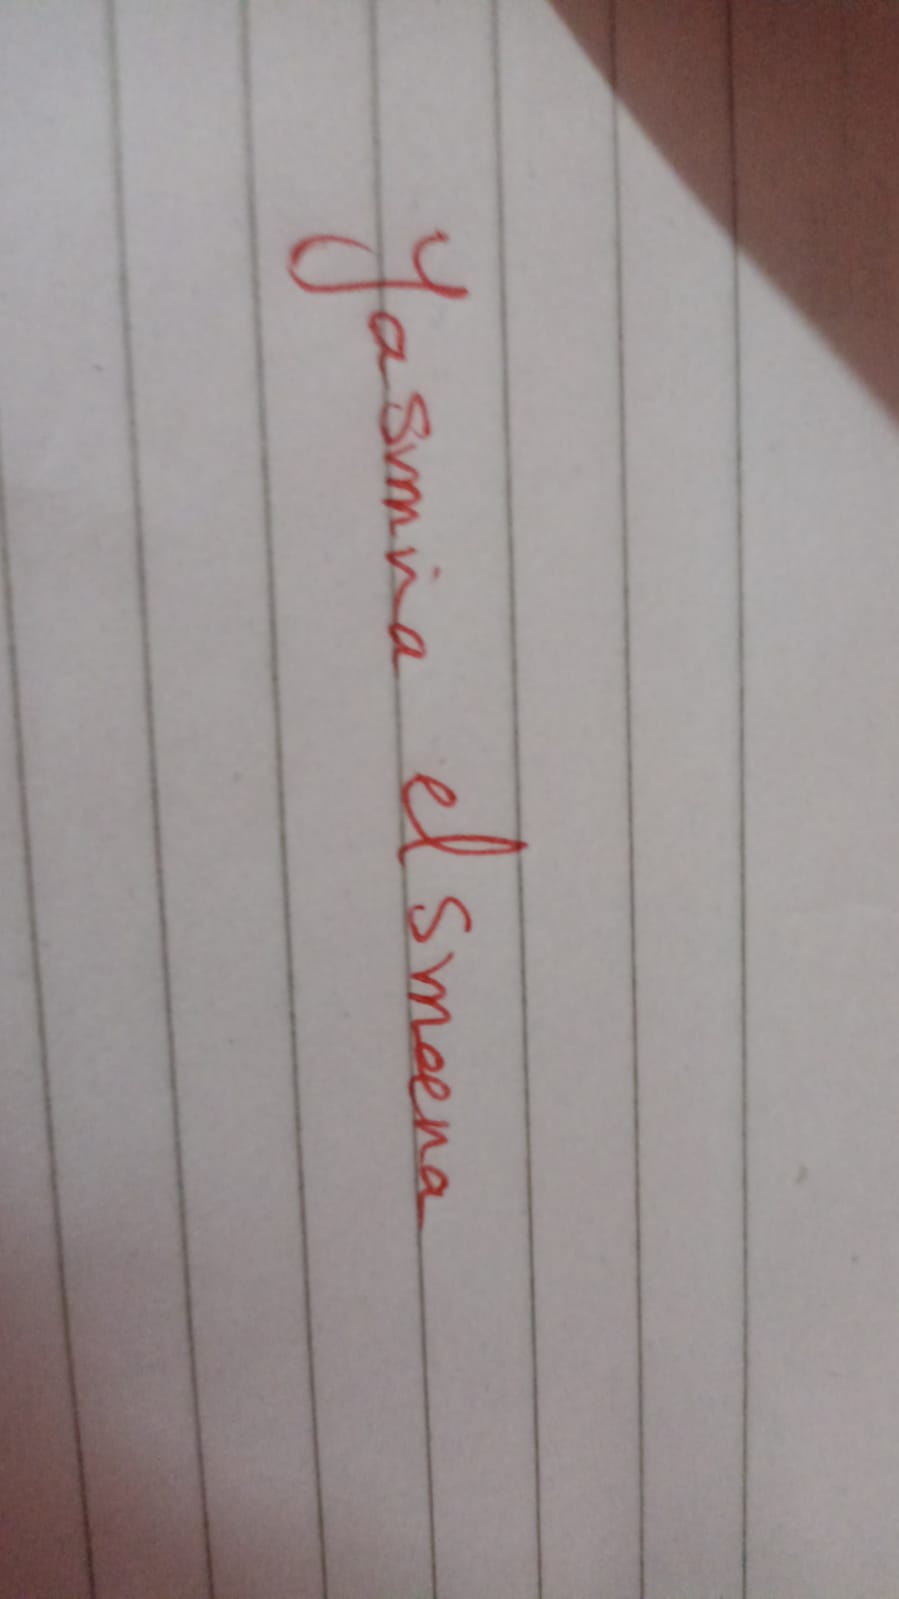 Yasmina el smeena